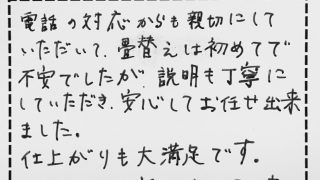 電話の対応からも親切にして
いただいて、畳替えは初めてで
不安でしたが、説明も丁寧に
していただき、安心してお任せ出来
ました。
仕上がりも大満足です。